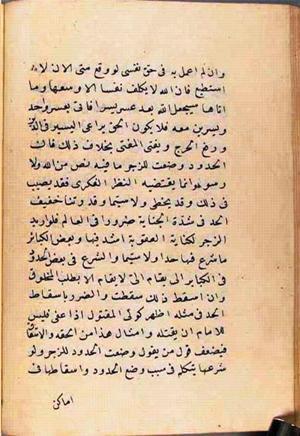 وان لم اعمل به فى حق نفسى لو وقع منى الا ان لا
استطيع فان الله لا يكلف نفسا الا وسعها وما
اتاها سيجعل الله بعد عسر يسرا فاتى بعسر واحد
ويسرين معه فلا يكون الحق يراعى اليسير فى الدين
ورفع الحرج ويفتى المفتى بخلاف ذلك فان
الحدود وضعت للزجر ما فيه نص من الله ولا
رسوله وانما يقتضيه النظر الفكرى فقد يصيب
فى ذلك وقد يخطى ولا سيما وقد رتبنا خفيف
الحد فى شدة الجناية ضرورا فى العالم فلو اريد
الزجر لكانة العقوبة اشد فيها وبعض الكبائر
ما شرع فيها حد ولا سيما والشرع فى بعض الحدود
فى الكبائر التى يقام التى لا يقام الا بطلب المخلوق
وان اسقط ذلك سقطت والضرر باسقاط
الحد فى مثله اظهر كولى المقتول اذا عفى فليس
للامام ان يقتله وامثال هذا من الحقه والاسقاط
فيضعف قول من يقول وضعت الحدود للزجر ولو
شرعنا نتكلم فى سبب وضع الحدود واسقاطها فى
اماكن